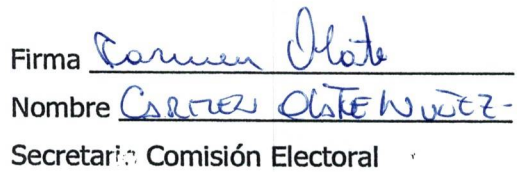 Firma Carmen Olate
Nombre CARMEN OLATE NUÑEZ-
Secretaria Comisión Electoral